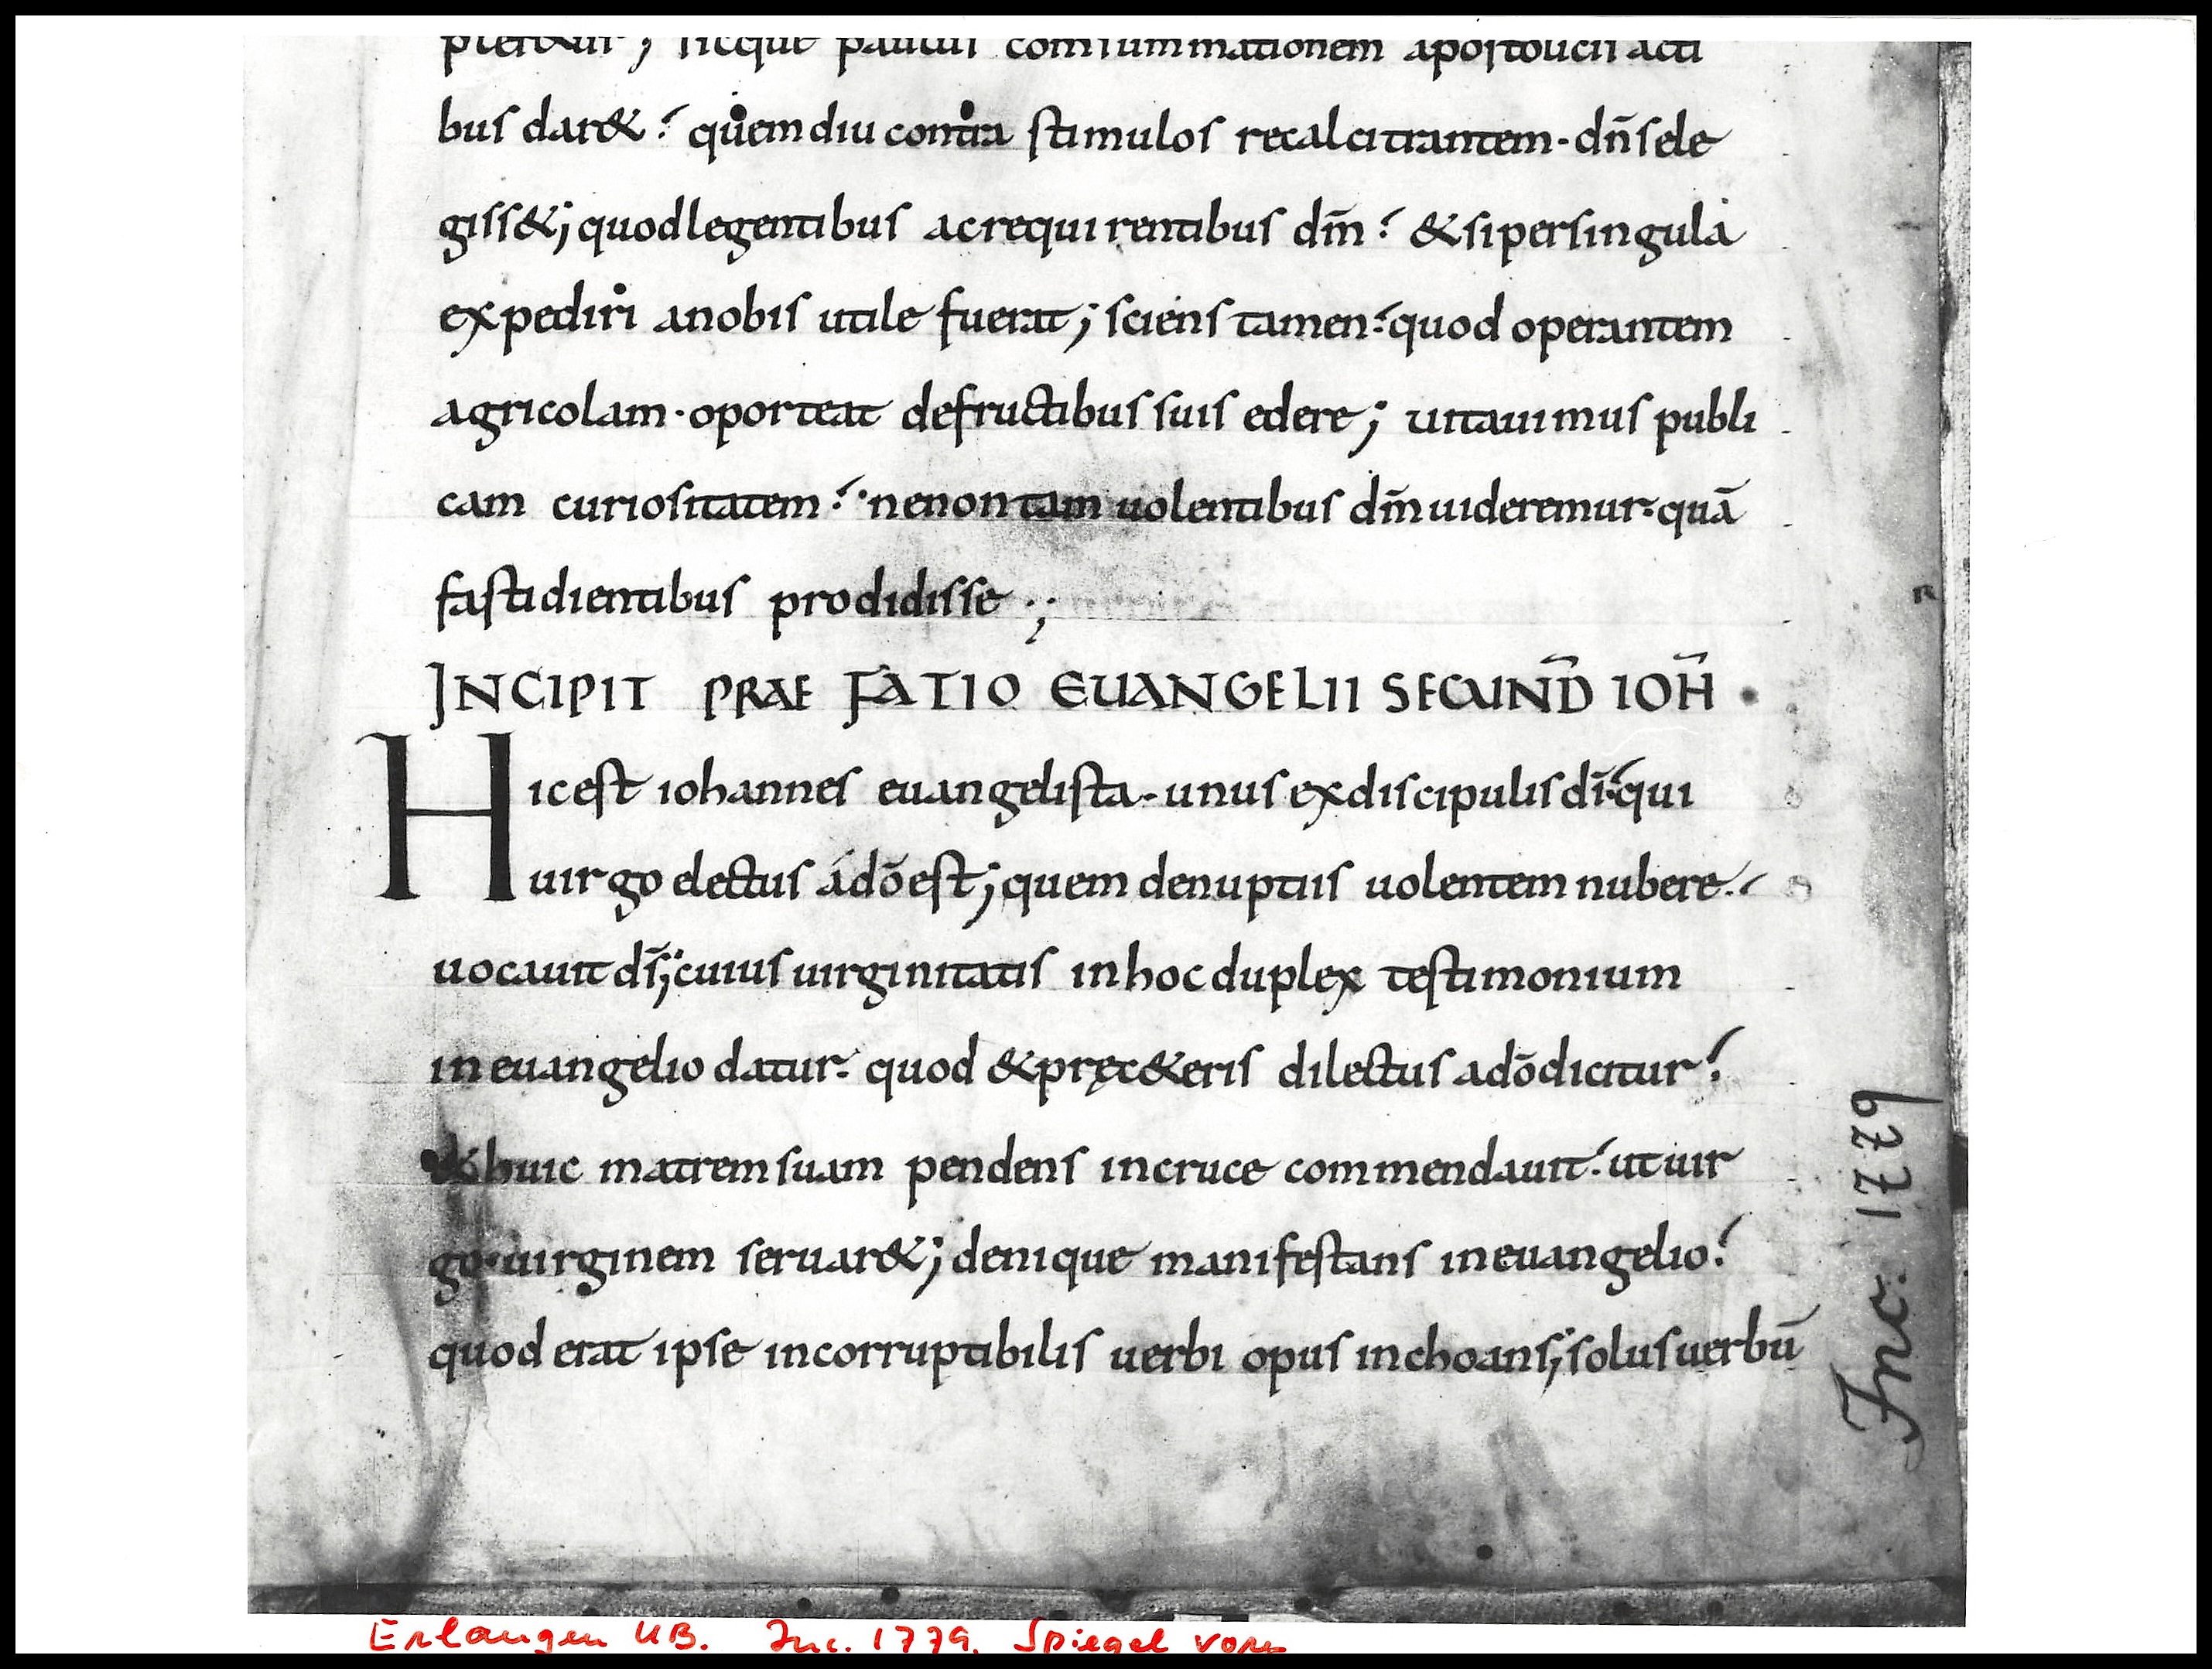 pleretur; sicque paulus consummationem apostolicis acti
bus dar&; quem diu contra stimulos recalcitrantem · dn̄s ele
giss&; quod legentibus ac requirentibus dm̄; & si per singula
expediri a nobis utile fuerat; sciens tamen quod operantem
agricolam · oporteat de fructibus suis edere; uitauimus publi
cam curiositatem; ne non tam uolentibus dm̄ uideremur quā
fastidientibus prodidisse;
INCIPIT PRAEFATIO EUANGELII SECUND̄ IOH̄ ·
Hic est iohannes euangelista · unus ex discipulis dī qui
uirgo electus a dō est; quem de nuptiis uolentem nubere
uocauit ds̄; cuius uirginitatis in hoc duplex testimonium
in euangelio datur quod & pręc&eris dilectus a dō dicitur
& huic matrem suam pendens in cruce commendauit ut uir
go · uirginem seruar&; denique manifestans in euangelio
quod erat ipse incorruptibilis uerbi opus inchoans; solus uerbū
Inc. 1779
Erlangen UB. Inc. 1779. Spiegel vorn